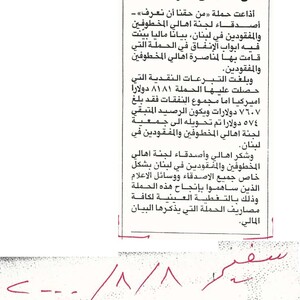 أذاعت حملة «من حقنا أن نعرف» ـ
أصدقاء لجنة اهالي المخطوفين
والمفقودين في لبنان، بيانا ماليا بينت
فيه ابواب الإنفاق في الحملة التي
قامت بها لمناصرة اهالي المخطوفين
والمفقودين.
وبلغت التبرعات النقدية التي
حصلت عليها الحملة ٨١٨١ دولارا
اميركيا اما مجموع النفقات فقد بلغ
٧٦٠٧ دولارات ويكون الرصيد المتبقي
٥٧٤ دولارا تم تحويله الى جمعية
لجنة اهالي المخطوفين والمفقودين في
لبنان.
وشكر اهالي وأصدقاء لجنة اهالي
المخطوفين والمفقودين في لبنان بشكل
خاص جميع الاصدقاء ووسائل الاعلام
الذين ساهموا بإنجاح هذه الحملة
وذلك بالتغطية العينية لكافة
مصاريف الحملة التي يذكرها البيان
المالي.
سفير ٨/٨/٢٠٠٠